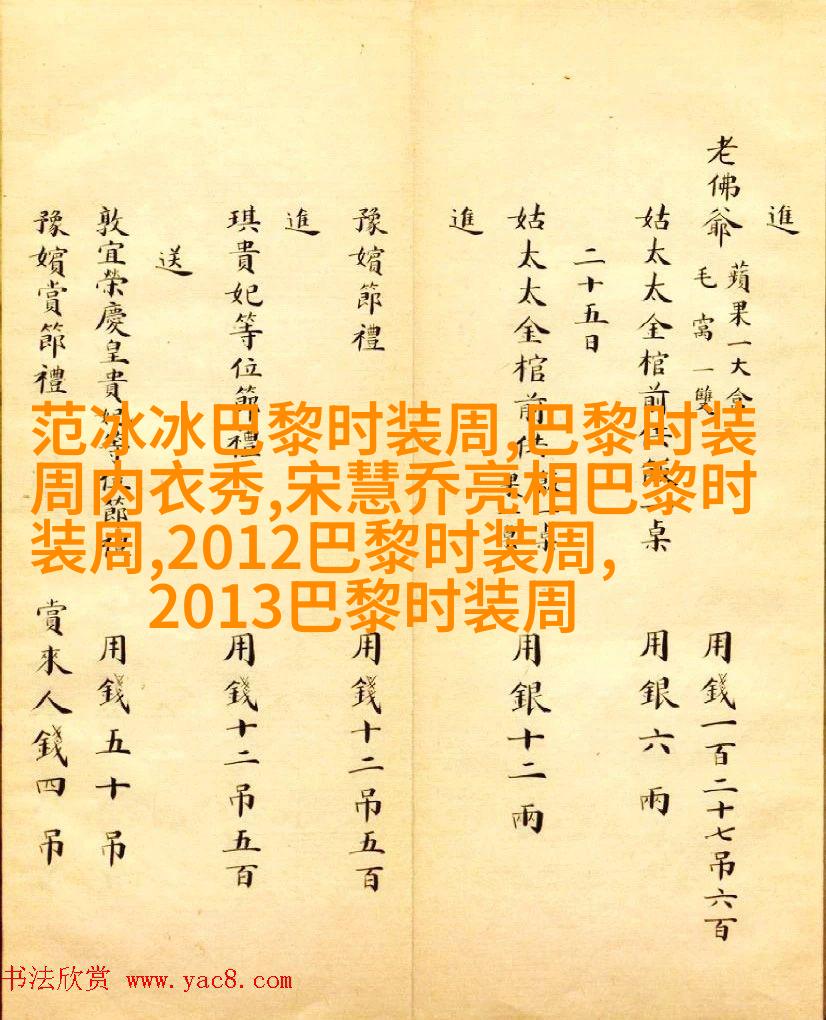 進
老佛爺 蘋果一大盒 毛窩一雙 用錢一百二十七吊六百
姑太太金棺前供飯一桌 用銀六兩
二十五日
姑太太金棺前供 桌 果一 用銀十二兩
進
豫嬪節禮 用錢十二吊五百
進
琪貴妃等位節禮 用錢十二吊五百
送
敦宜榮慶皇貴妃等位節禮 用錢五十吊
豫嬪賞節禮 賞來人錢四吊
范冰冰巴黎时装周,巴黎时装
周内衣秀,宋慧乔亮相巴黎时
装周,2012巴黎时装周,
2013巴黎时装周
书法欣赏 www.yac8.com